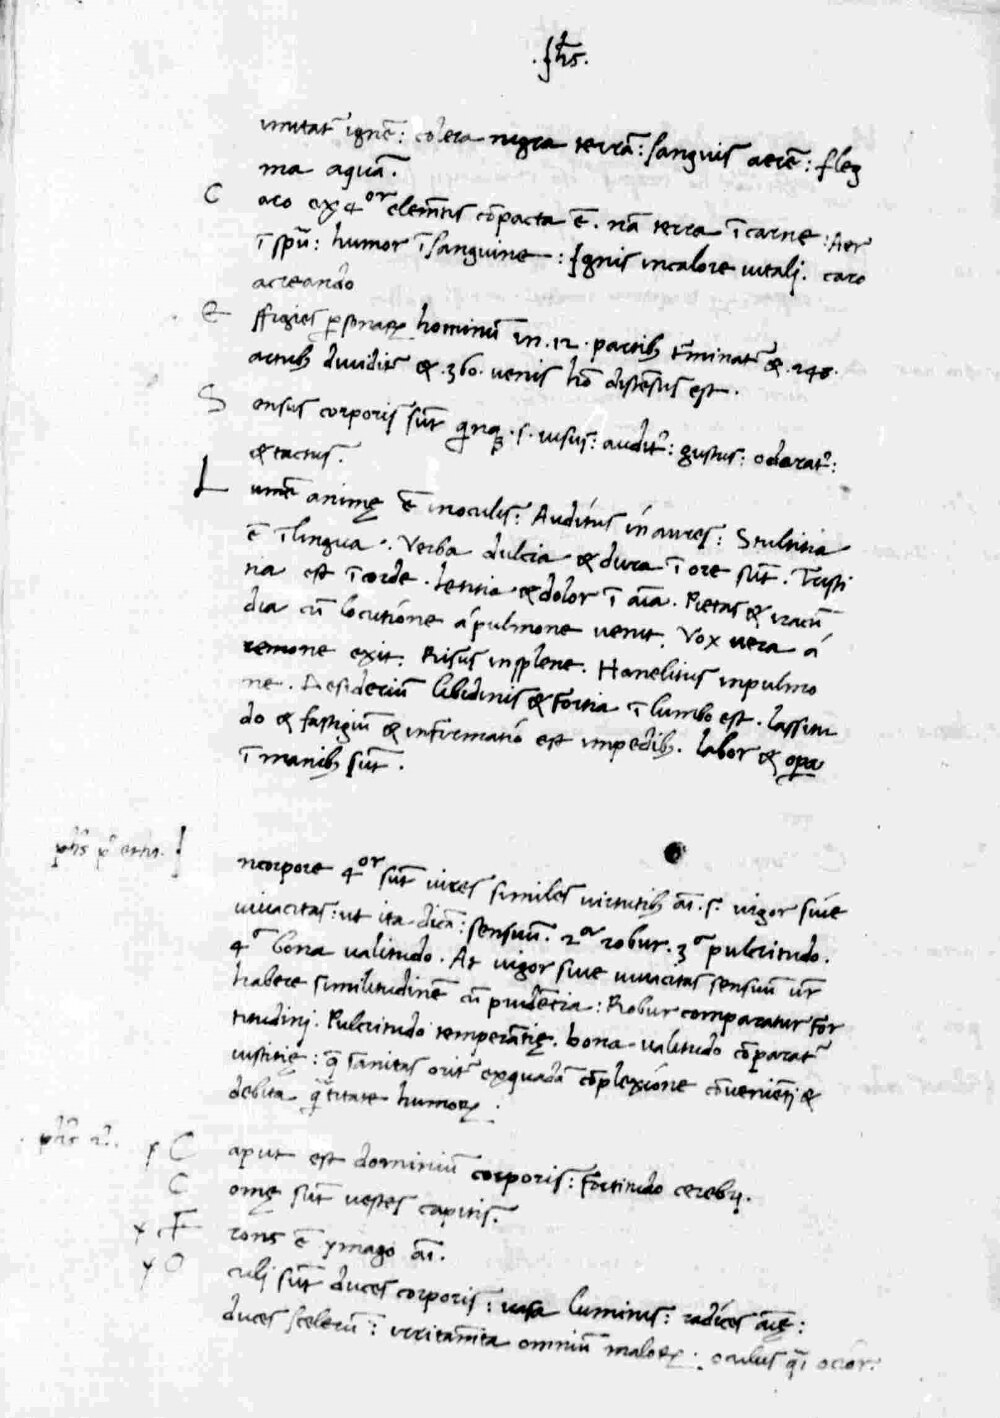 .Jħs.
imitat᷑ ignē: colera nigra terrā: sanguis aerē: fleg
ma aquā.
C aro ex 4or elemētis cōpacta ē. nā terra ī carne: Aer
ī spū: humor ī sanguine: Ignis in calore vitalj. caro
a creando
E ffigies ꝑsonaꝝ hominū in .12. partibꝫ t᷑minat᷑ & .248.
artubꝫ dividit᷑ & .360. venis hō distensus est.
S ensus corporis sūt qinqꝫ .s. visus: audit᷑: gustus: odorat᷑:
& tactus.
L umē animę ē in oculis: Auditus in aures: Stultitia
ē ī lingua. Verba dulcia & dura ī ore sūt. Tristi
tia est ī corde. Letitia & dolor ī aīa. Pietas & iracū
dia cū locutione á pulmone venit. Vox vera á
remone exit. Risus in splene. Hanelitus in pulmo
ne. Desideriū libidinis & fortia ī lumbo est. Lassitu
do & fastigiū & infirmatio est in pedibꝫ. Labor & oꝑa
ī manibꝫ sūt.
I n corpore 4or sūt vires similes virtutibꝫ aī. s. vigor sive
vivacitas: ut ita dicā: sensuū. 2a robur. 3a pulcritudo.
4a bona valitudo. At vigor sive vivacitas sensuū vr̄
habere similitudinē cū prudētia: Robur comparatur for
titudinj. Pulcritudo temperātię. bona valitudo cōparat᷑
iustitię: q̄ sanitas orit᷑ ex quadā cōplexione cōveniētj &
debita q̄titate humoꝝ.
C aput est dominiū corporis: fortitudo cerebrj.
C omę sūt vestes capitis.
F rons ē ymago aī.
O culj sūt duces corporis: vasa luminis: radices aīę:
duces scelerū: irritamīta omniū maloꝝ: oculus qī ocior.